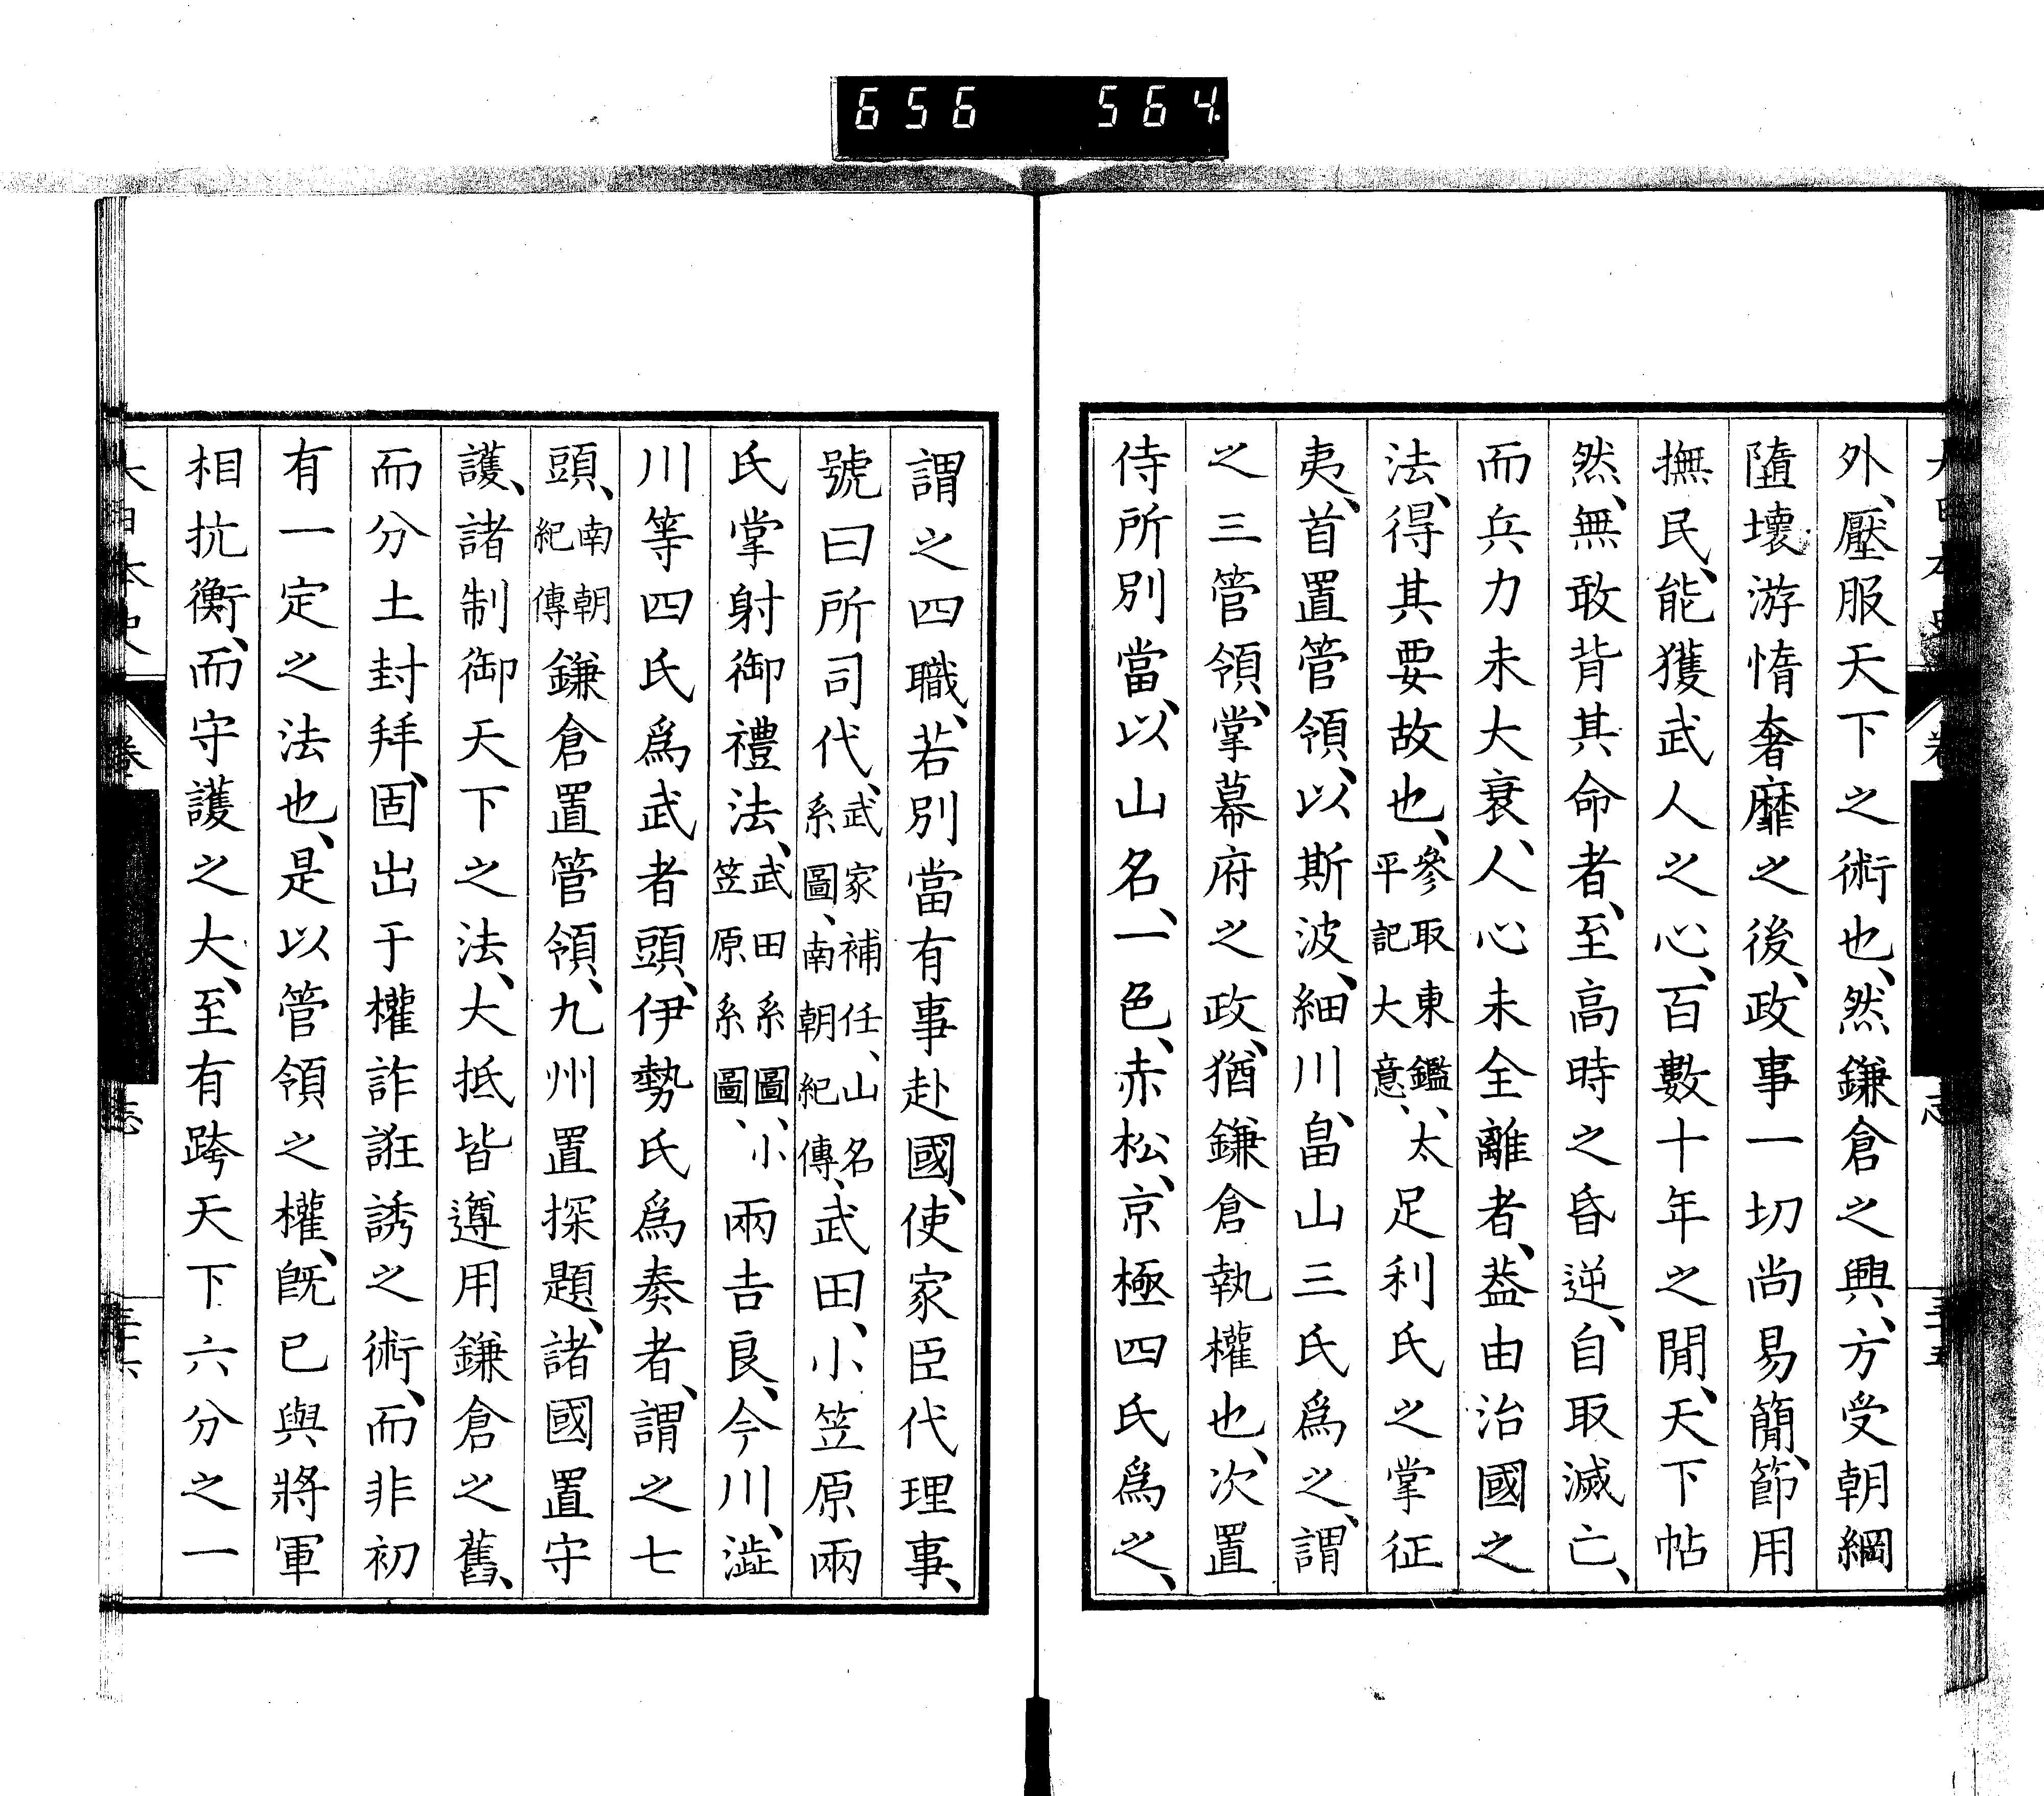 656 564
外、壓服天下之術也、然鎌倉之興、方受朝綱
隳壞游惰奢靡之後、政事一切尚易簡、節用
撫民、能獲武人之心、百數十年之閒、天下帖
然、無敢背其命者、至高時之昏逆、自取滅亡、
而兵力未大衰、人心未全離者、葢由治國之
法、得其要故也、參取東鑑、太平記大意、足利氏之掌征
夷、首置管領、以斯波、細川、畠山三氏爲之、謂
之三管領、掌幕府之政、猶鎌倉執權也、次置
侍所別當、以山名、一色、赤松、京極四氏爲之、
謂之四職、若別當有事赴國、使家臣代理事、
號曰所司代、武家補任、山名系圖、南朝紀傳、武田、小笠原兩
氏掌射御禮法、武田系圖、小笠原系圖、兩吉良、今川、澁
川等四氏爲武者頭、伊勢氏爲奏者、謂之七
頭、南朝紀傳鎌倉置管領、九州置探題、諸國置守
護、諸制御天下之法、大抵皆遵用鎌倉之舊、
而分土封拜、固出于權詐誑誘之術、而非初
有一定之法也、是以管領之權、旣已與將軍
相抗衡、而守護之大、至有跨天下六分之一
大日本史 卷 志 三十六